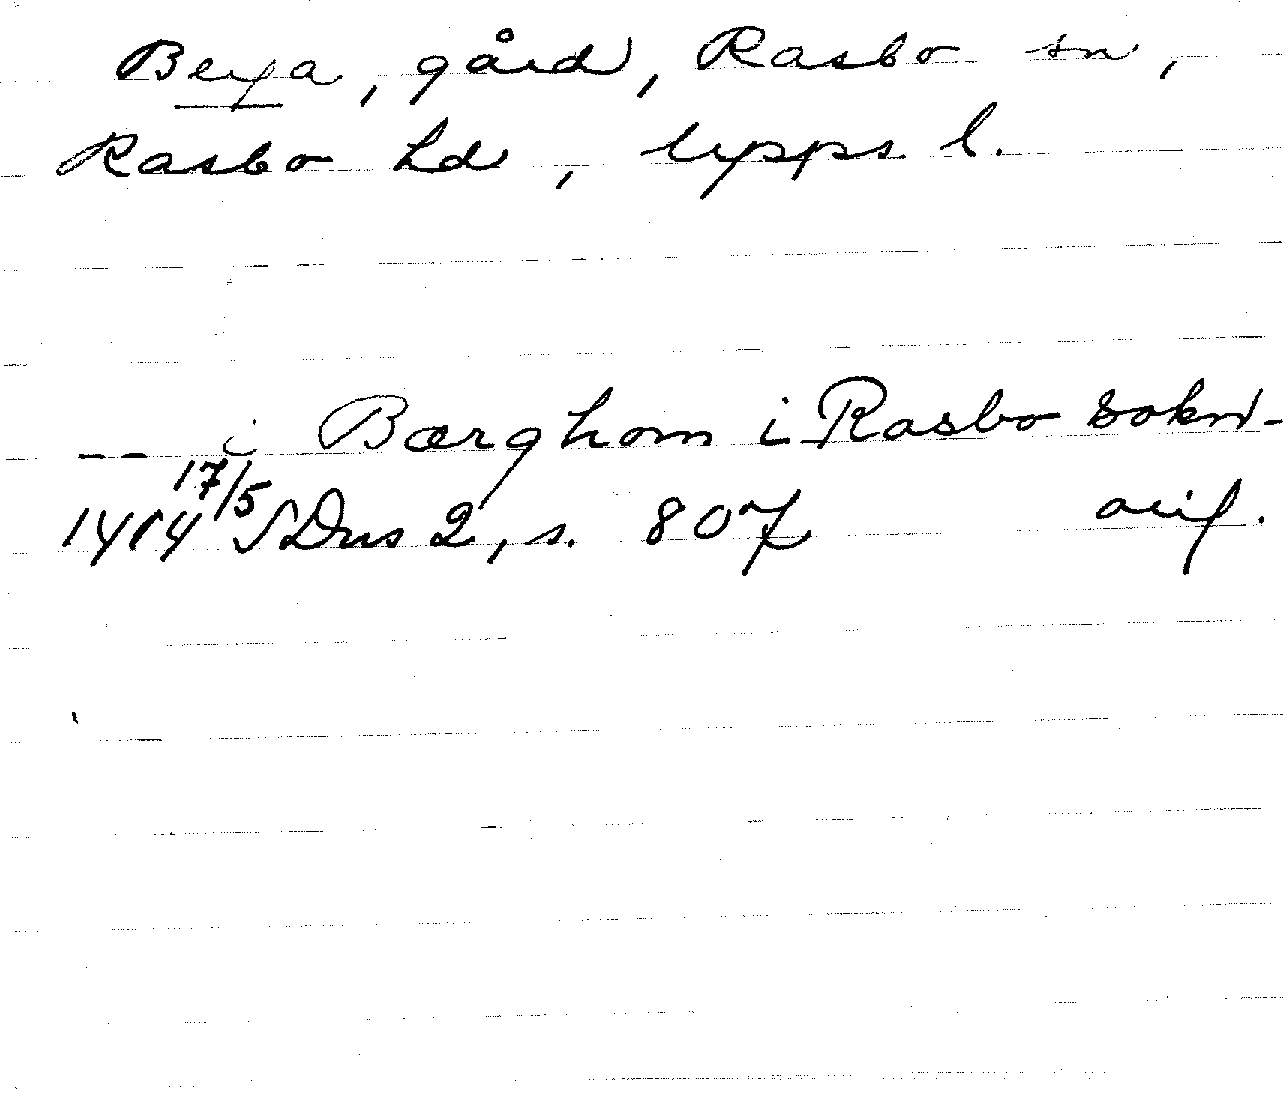 Berga, gård, Rasbo sn,
Rasbo hd, Upps l.
-- i Bærghom i Rasbo sokn -
1414 17/5 SDns 2, s. 807 avsk.